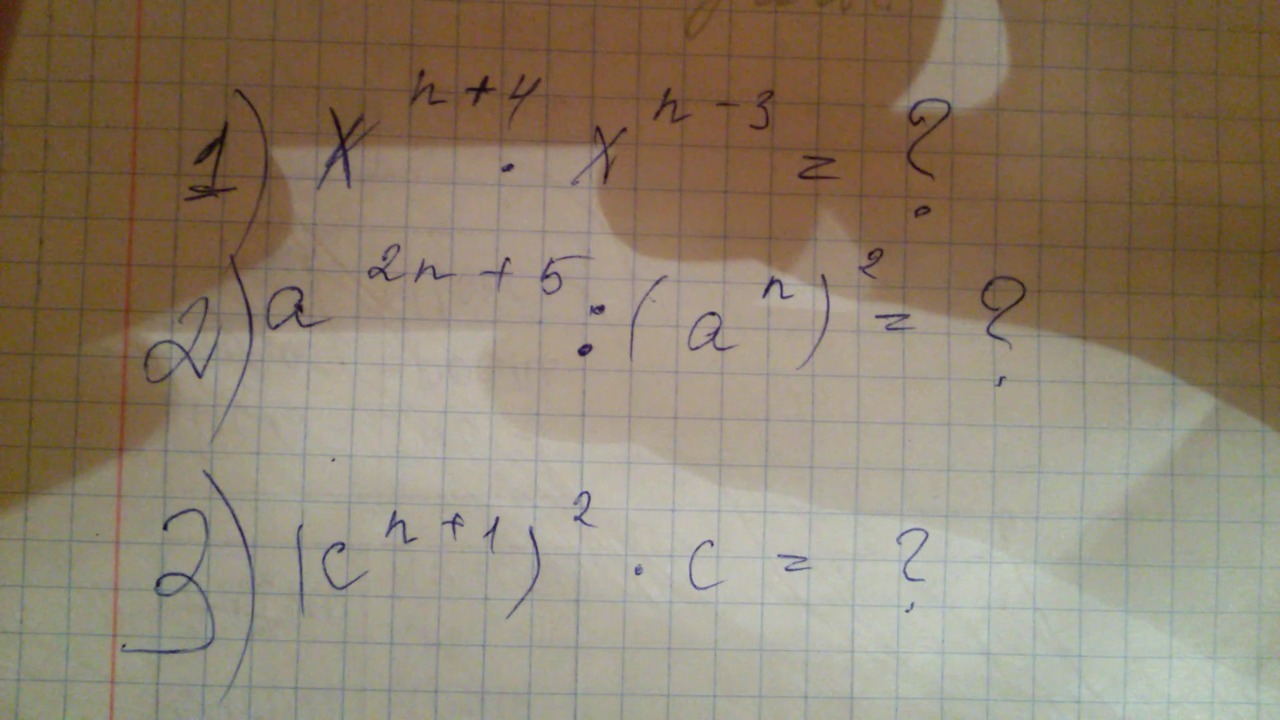 1) x^{n+4} · x^{n-3} = ?
2) a^{2n+5} : (a^n)^2 = ?
3) (c^{n+1})^2 · c = ?